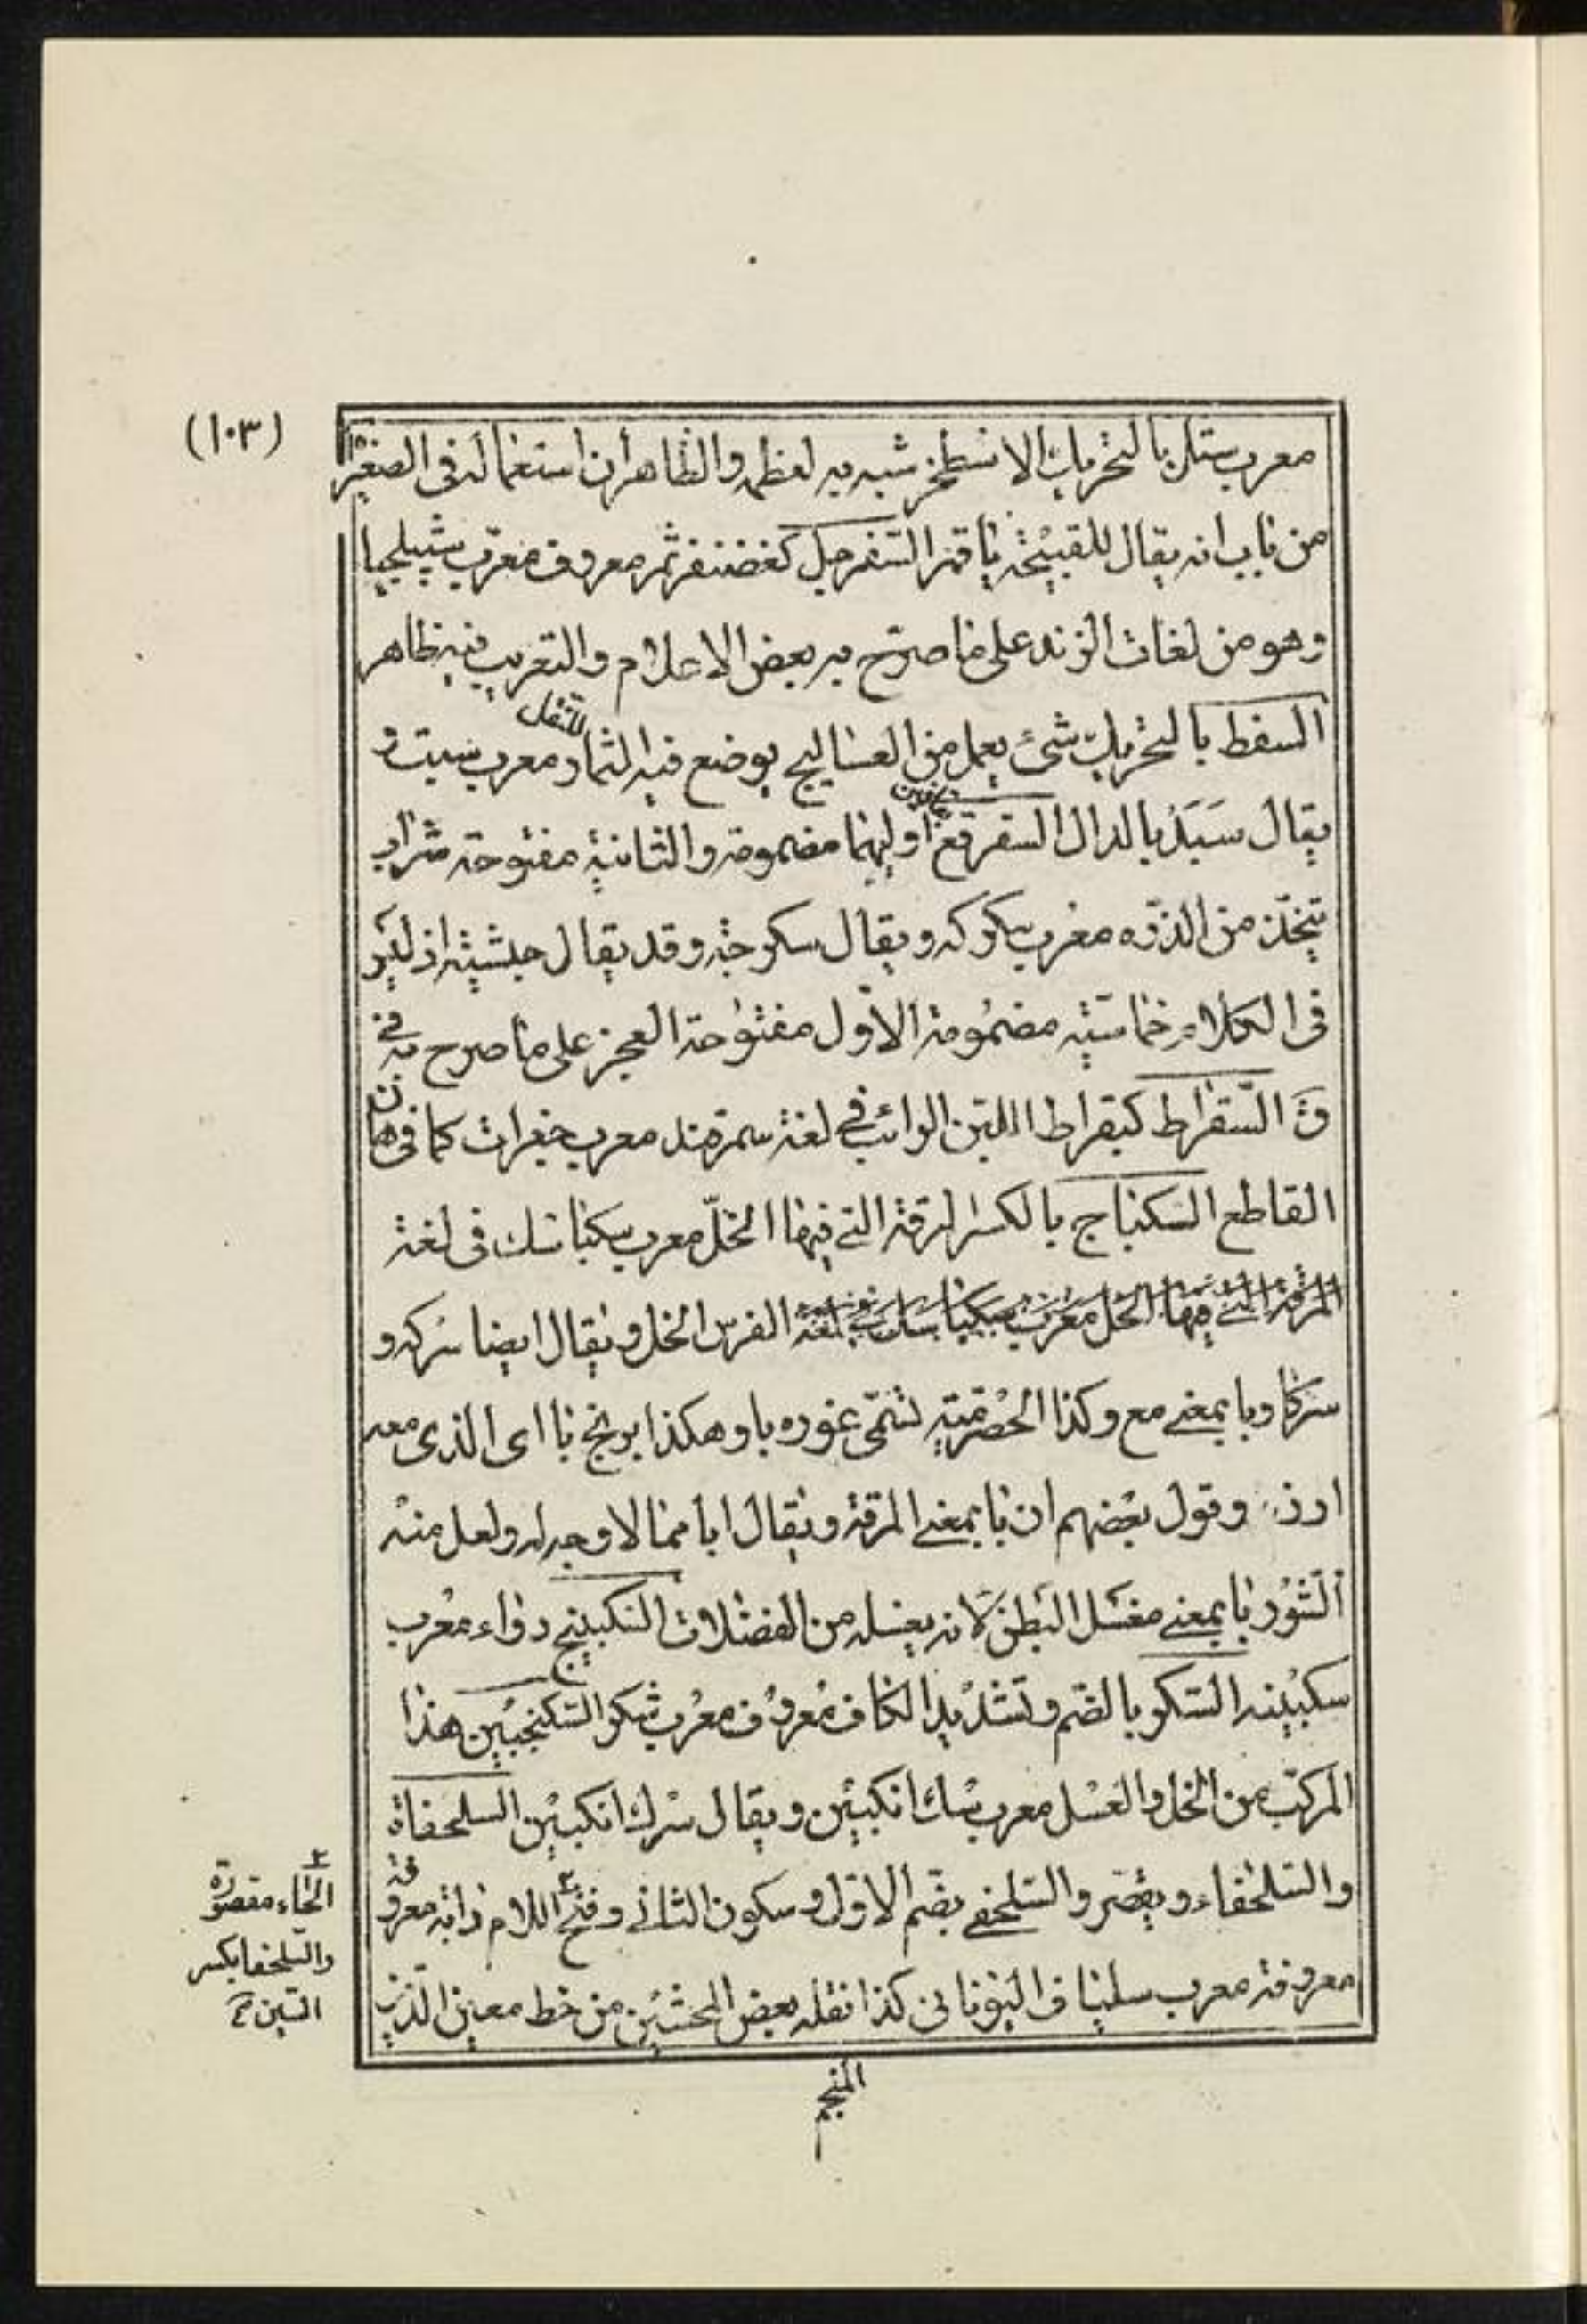 (١٠٣)
معرب ستل بالتحريك الاسطخر شبه به لعظمه والظاهر أن استعماله فى الصغير
من باب انه يقال للقبيحة يا قمر السفرجل كغضنفر ثمر معروف معرب
وهو من لغات الزند على ما صرّح به بعض الاعلام والتعريب فيه ظاهر
السفط بالتحريك شئ يعمل من العساليج يوضع فيه الثمار معرب سبت و
للتنقل
يقال سَبَد بالدال السقرقع اوليهما مضمومة والثانية مفتوحة شراب
بقافين
يتخذ من الذره معرب سكركه ويقال سكرجه وقد يقال حبشية اذ ليس
فى الكلام خماسية مضمومة الاول مفتوحة العجز على ما صرح به فى
ق السقراط كبقراط اللبن الرائب فى لغة سمرقند معرب جغرات كما فى برهان
القاطع السكباج بالكسر المرقة التى فيها الخل معرب سكبا سك فى لغة
المرقة التى فيها الخل معرب سكبا سك فى لغة الفرس الخل ويقال ايضا سركه و
سركا وبا بمعنى مع وكذا الحصرمية تسمى غوره با وهكذا برنج با اى الذى معه
ارز وقول بعضهم ان با بمعنى المرقة ويقال ابا مما لا وجه له ولعل منه
الشوربا بمعنى مغسل البطن لانه يغسله من الفضلات السكبينج دواء معرب
سكبينه السكر بالضم وتشديد الكاف معروف معرب شكر السكنجبين هذا
المركب من الخل والعسل معرب سك انكبين ويقال سرك انكبين السلحفاة
والسلحفاء ويقصر والسلحفى بضم الاول وسكون الثانى وفتح اللام دابة معروفة
معروفة معرب سلپا فى اليونانى كذا نقله بعض المحشين من خط معين الدين
المنجم
٢
الحاء مقصورة
والسلحفا بكسر
السين